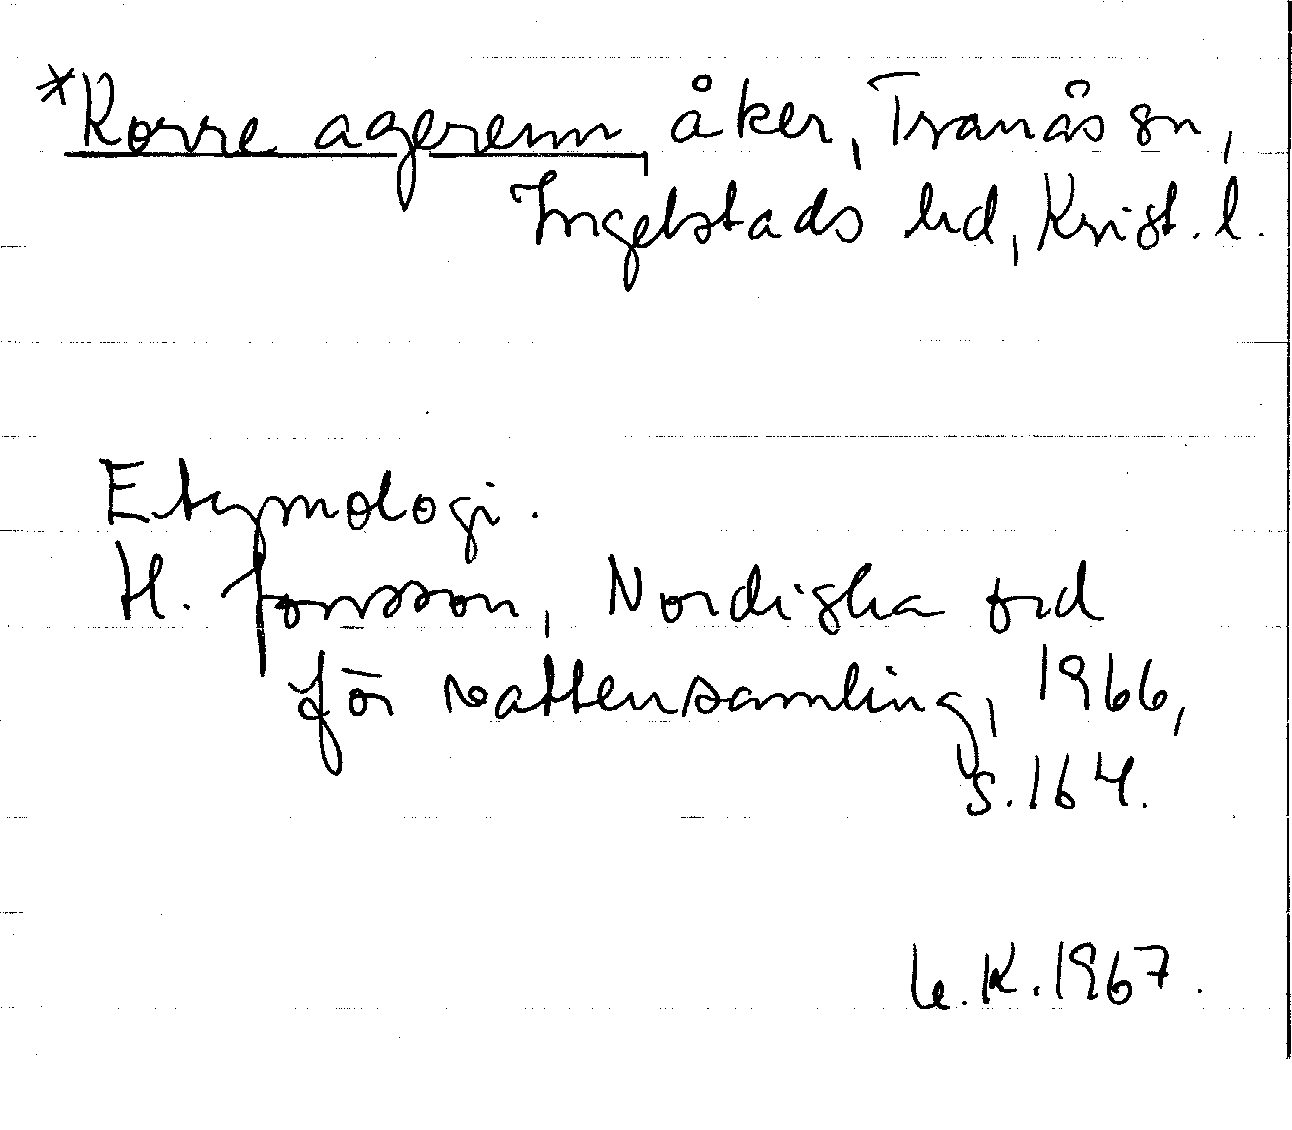 *Korre agerenn åker, Tranås sn,
Ingelstads hd, Krist. l.
Etymologi.
H. Jonsson, Nordiska ord
för vattensamling, 1966,
s. 164.
K. 1967.